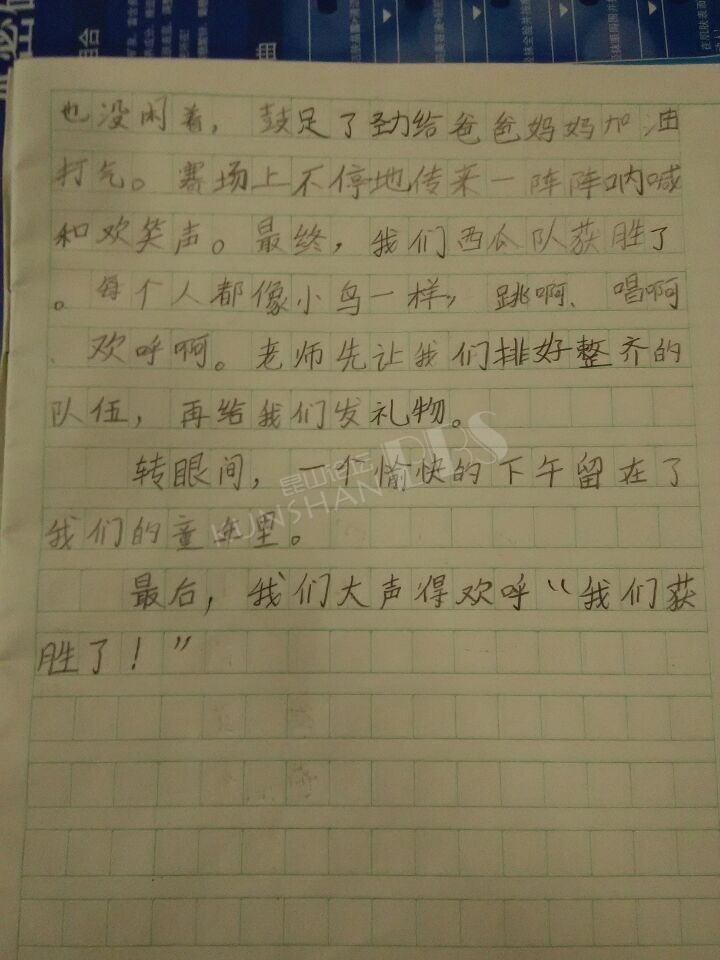 也没闲着，鼓足了劲给爸爸妈妈加油
打气。赛场上不停地传来一阵阵呐喊
和欢笑声。最终，我们西瓜队获胜了
。每个人都像小鸟一样，跳啊、唱啊
、欢呼啊。老师先让我们排好整齐的
队伍，再给我们发礼物。
转眼间，一个愉快的下午留在了
我们的童年里。
最后，我们大声得欢呼“我们获
胜了！”
昆山论坛
KUNSHAN BBS
组合
曲